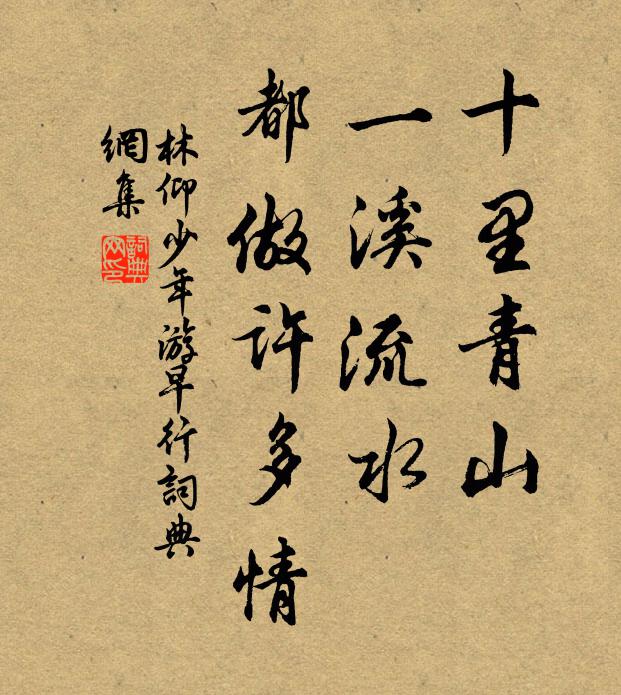 十里青山
一溪流水
都做許多情
林仰少年游早行詞典
網集
詞典網印